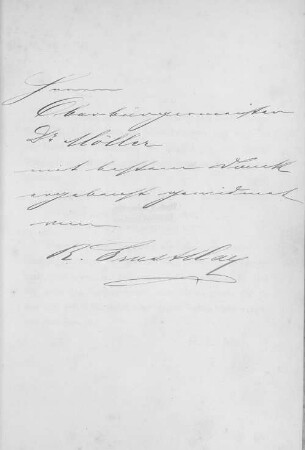 Herrn
Oberbürgermeister
Dr Möller
mit bestem Dank
ergebenst gewidmet
vom
R.